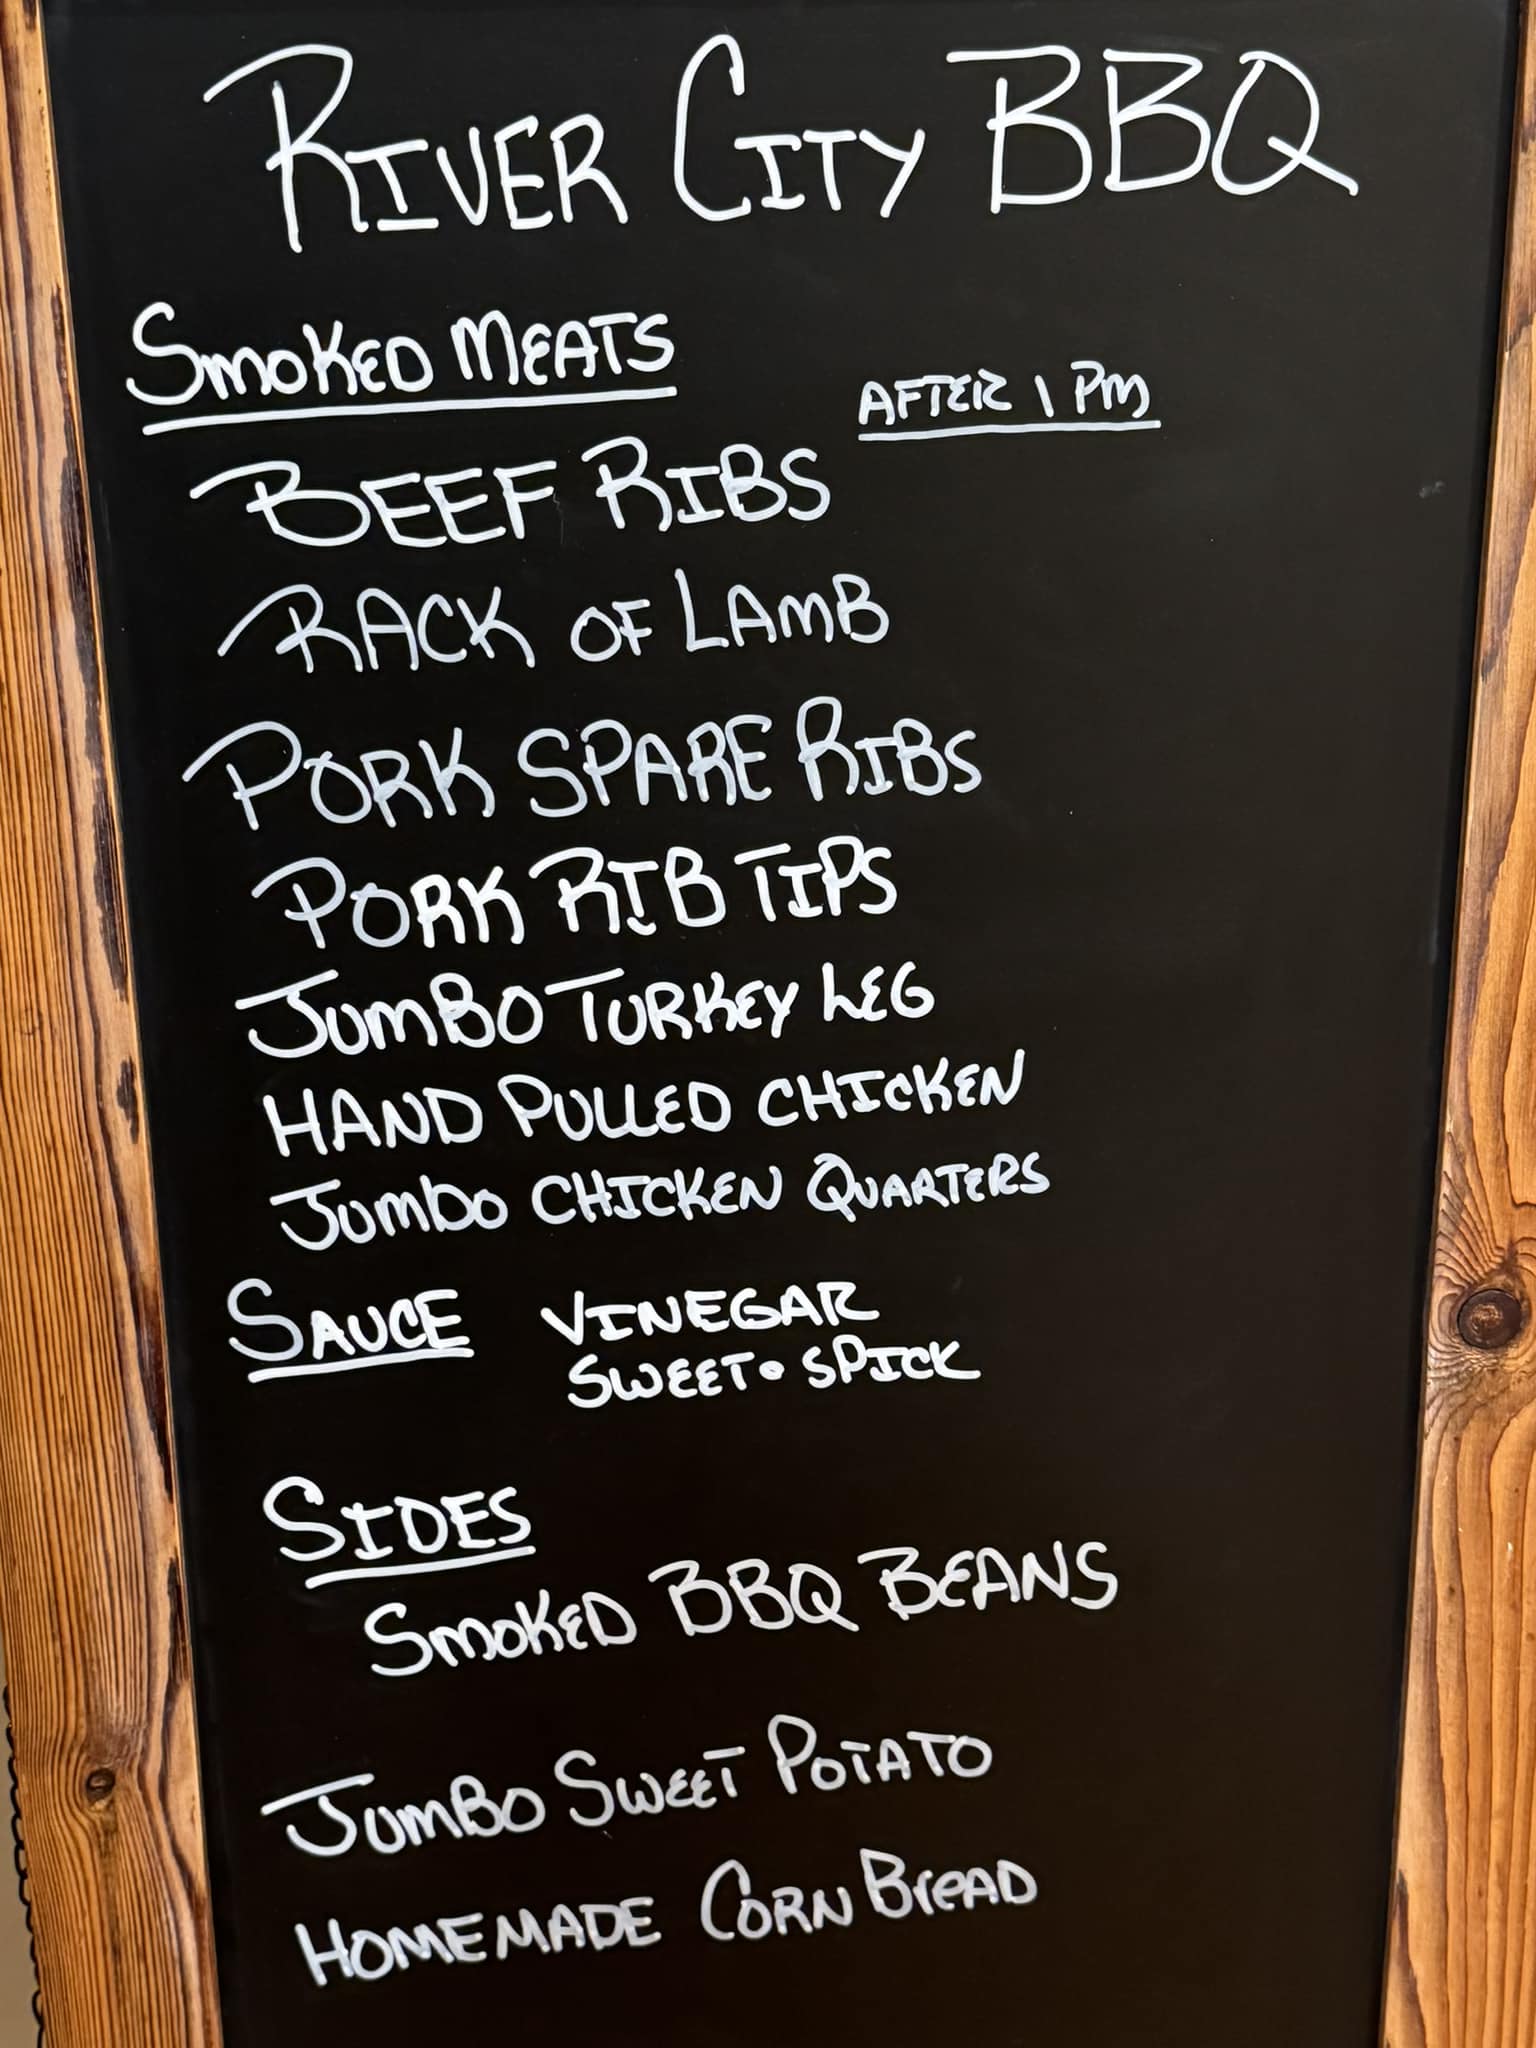 RIVER CITY BBQ
SMOKED MEATS
AFTER 1 PM
BEEF RIBS
RACK OF LAMB
PORK SPARE RIBS
PORK RIB TIPS
JUMBO TURKEY LEG
HAND PULLED CHICKEN
JUMBO CHICKEN QUARTERS
SAUCE VINEGAR
SWEET • SPICK
SIDES
SMOKED BBQ BEANS
JUMBO SWEET POTATO
HOMEMADE CORN BREAD